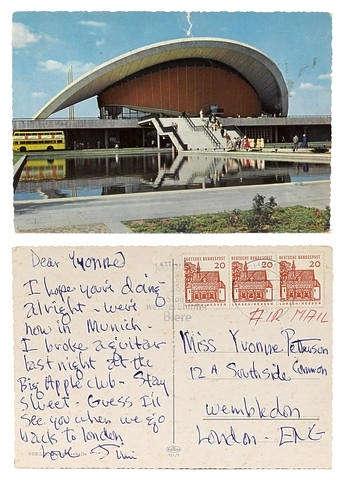 Dear Yvonne
I hope you're doing
alright - we're
now in Munich -
I broke a guitar
last night at the
Big Apple club - Stay
sweet - Guess I'll
see you when we go
back to London
Love - Jimi
DEUTSCHE BUNDESPOST 20
DEUTSCHE BUNDESPOST 20
DEUTSCHE BUNDESPOST 20
LORSCH · HESSEN
LORSCH · HESSEN
LORSCH · HESSEN
AIR MAIL
Miss Yvonne Petterson
12 A Southside Common
Wembledon
London - ENG